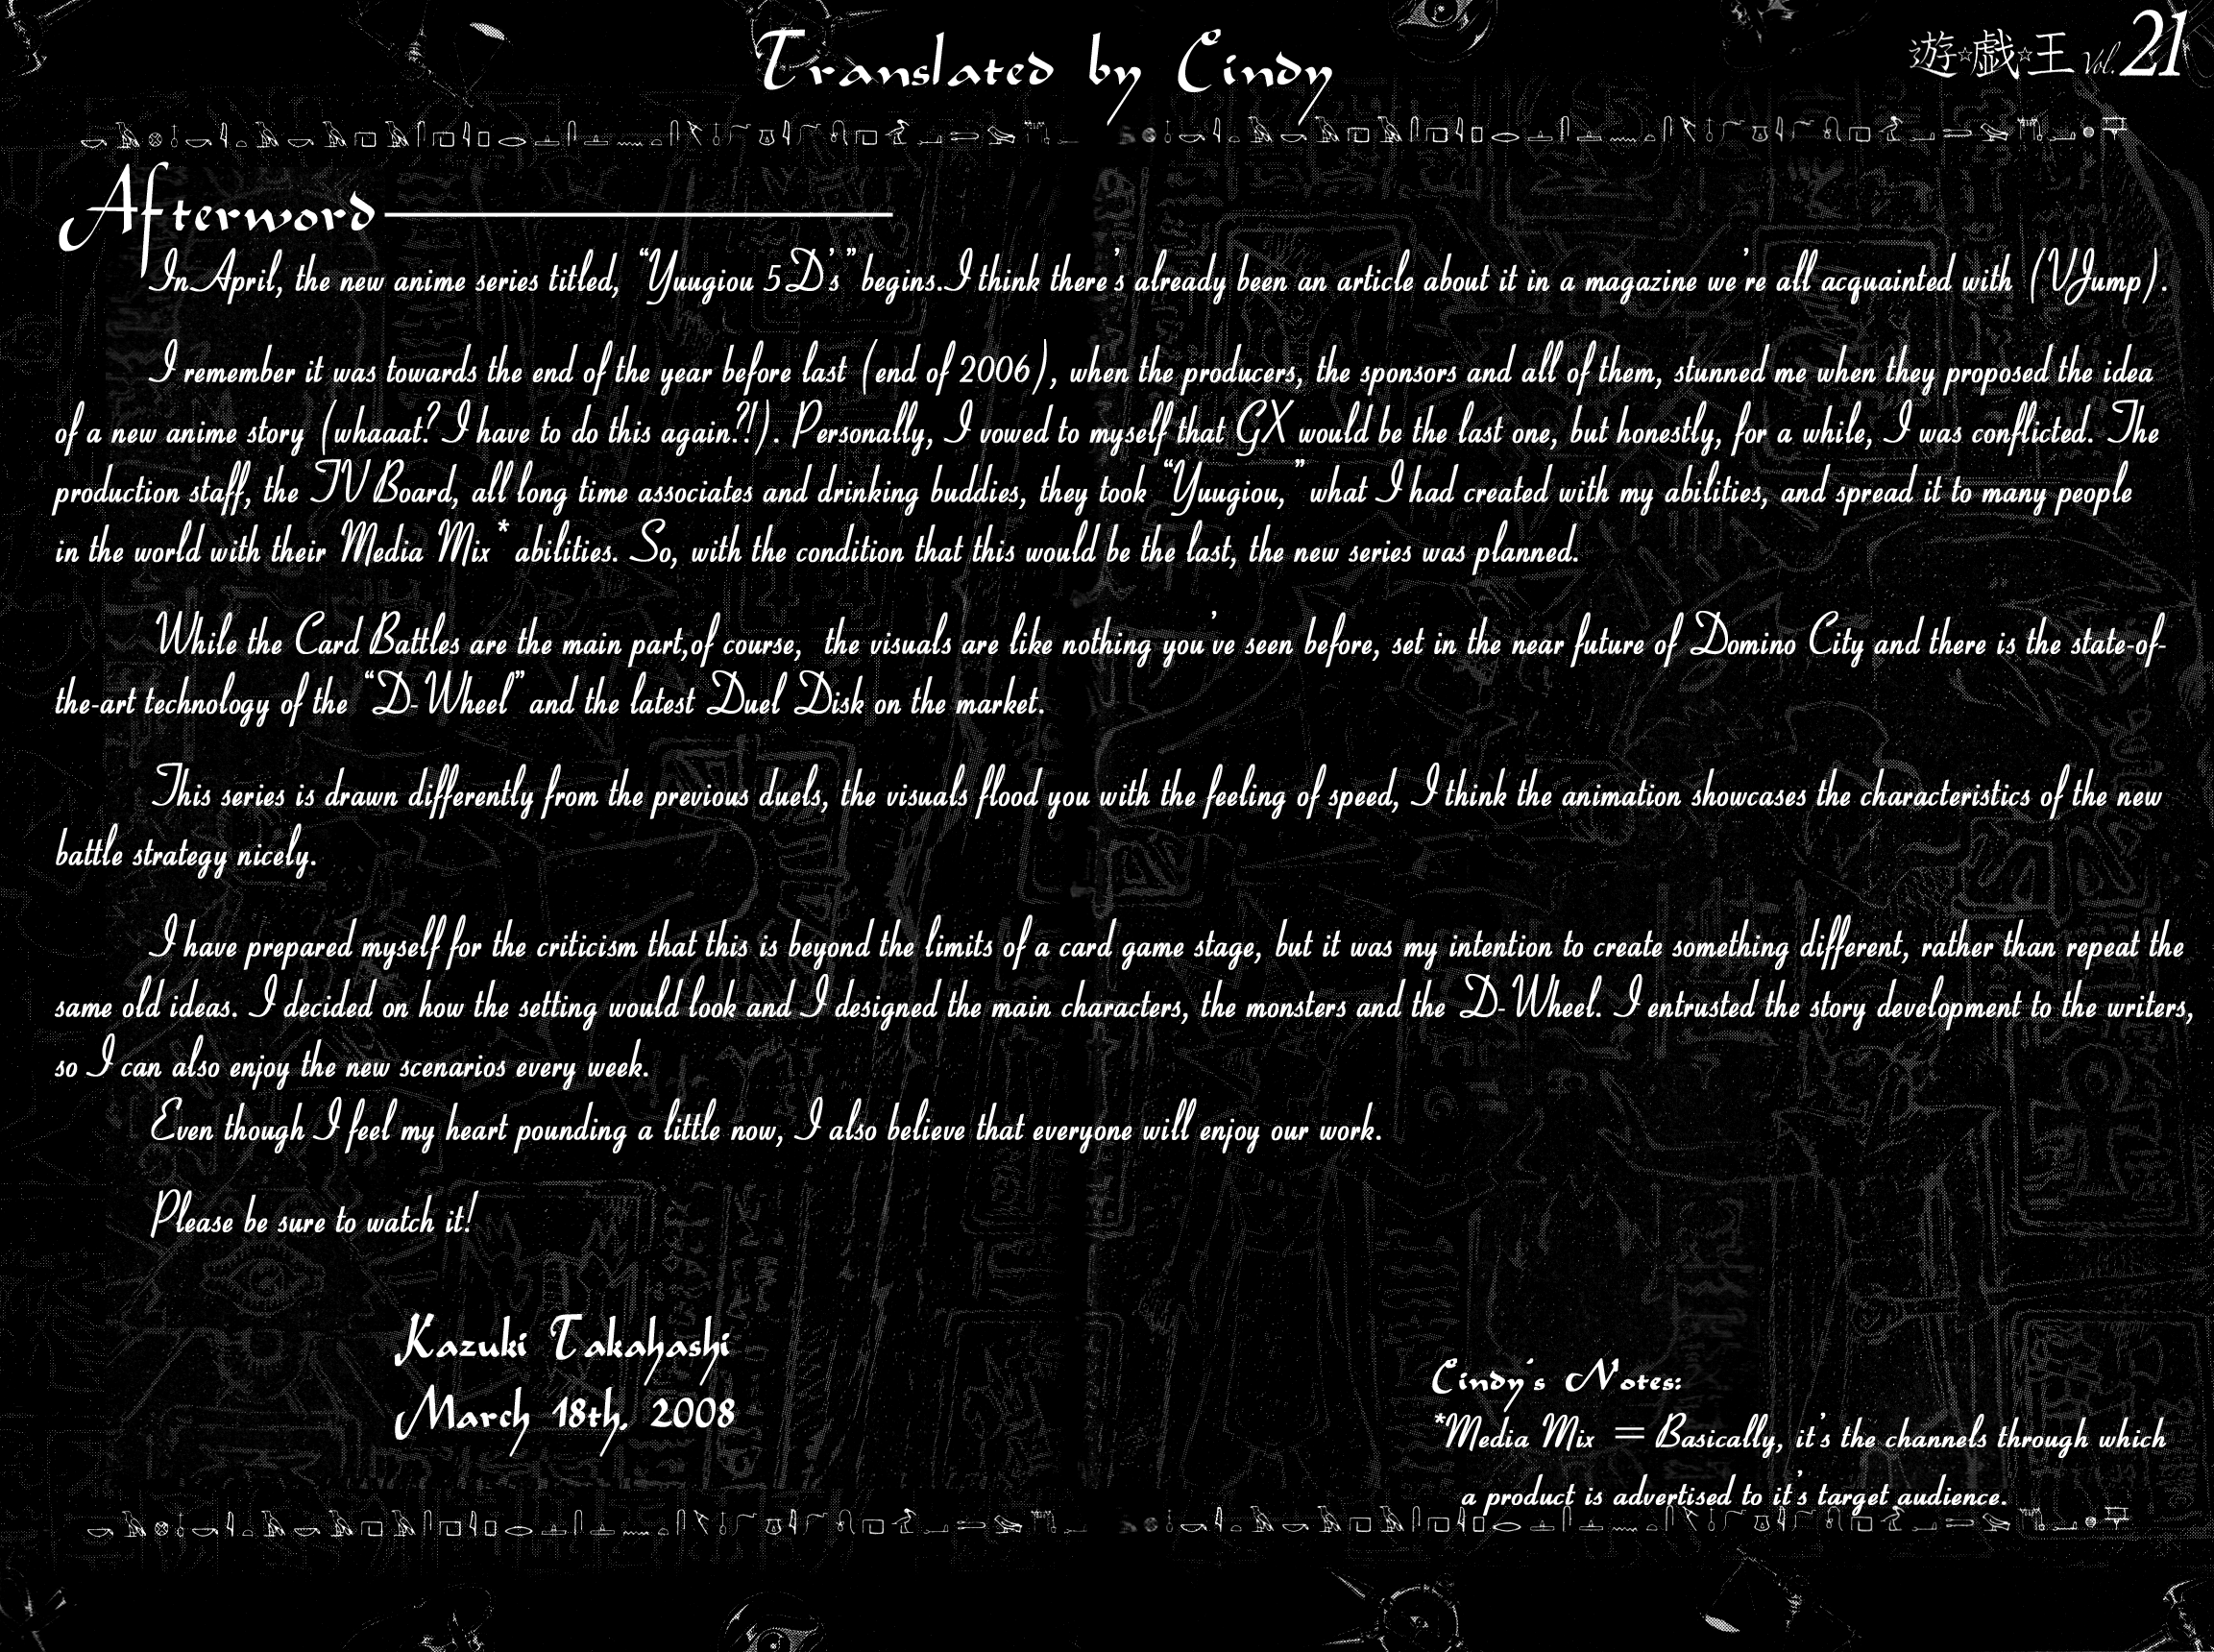 Translated by Cindy
遊☆戯☆王 Vol. 21
Afterword
In April, the new anime series titled, “Yuugiou 5D's” begins. I think there's already been an article about it in a magazine we're all acquainted with (VJump).
I remember it was towards the end of the year before last (end of 2006), when the producers, the sponsors and all of them, stunned me when they proposed the idea
of a new anime story (whaaat? I have to do this again?!). Personally, I vowed to myself that GX would be the last one, but honestly, for a while, I was conflicted. The
production staff, the TV Board, all long time associates and drinking buddies, they took “Yuugiou,” what I had created with my abilities, and spread it to many people
in the world with their Media Mix* abilities. So, with the condition that this would be the last, the new series was planned.
While the Card Battles are the main part,of course, the visuals are like nothing you've seen before, set in the near future of Domino City and there is the state-of-
the-art technology of the “D-Wheel” and the latest Duel Disk on the market.
This series is drawn differently from the previous duels, the visuals flood you with the feeling of speed, I think the animation showcases the characteristics of the new
battle strategy nicely.
I have prepared myself for the criticism that this is beyond the limits of a card game stage, but it was my intention to create something different, rather than repeat the
same old ideas. I decided on how the setting would look and I designed the main characters, the monsters and the D-Wheel. I entrusted the story development to the writers,
so I can also enjoy the new scenarios every week.
Even though I feel my heart pounding a little now, I also believe that everyone will enjoy our work.
Please be sure to watch it!
Kazuki Takahashi
March 18th, 2008
Cindy's Notes:
*Media Mix = Basically, it's the channels through which
a product is advertised to it's target audience.